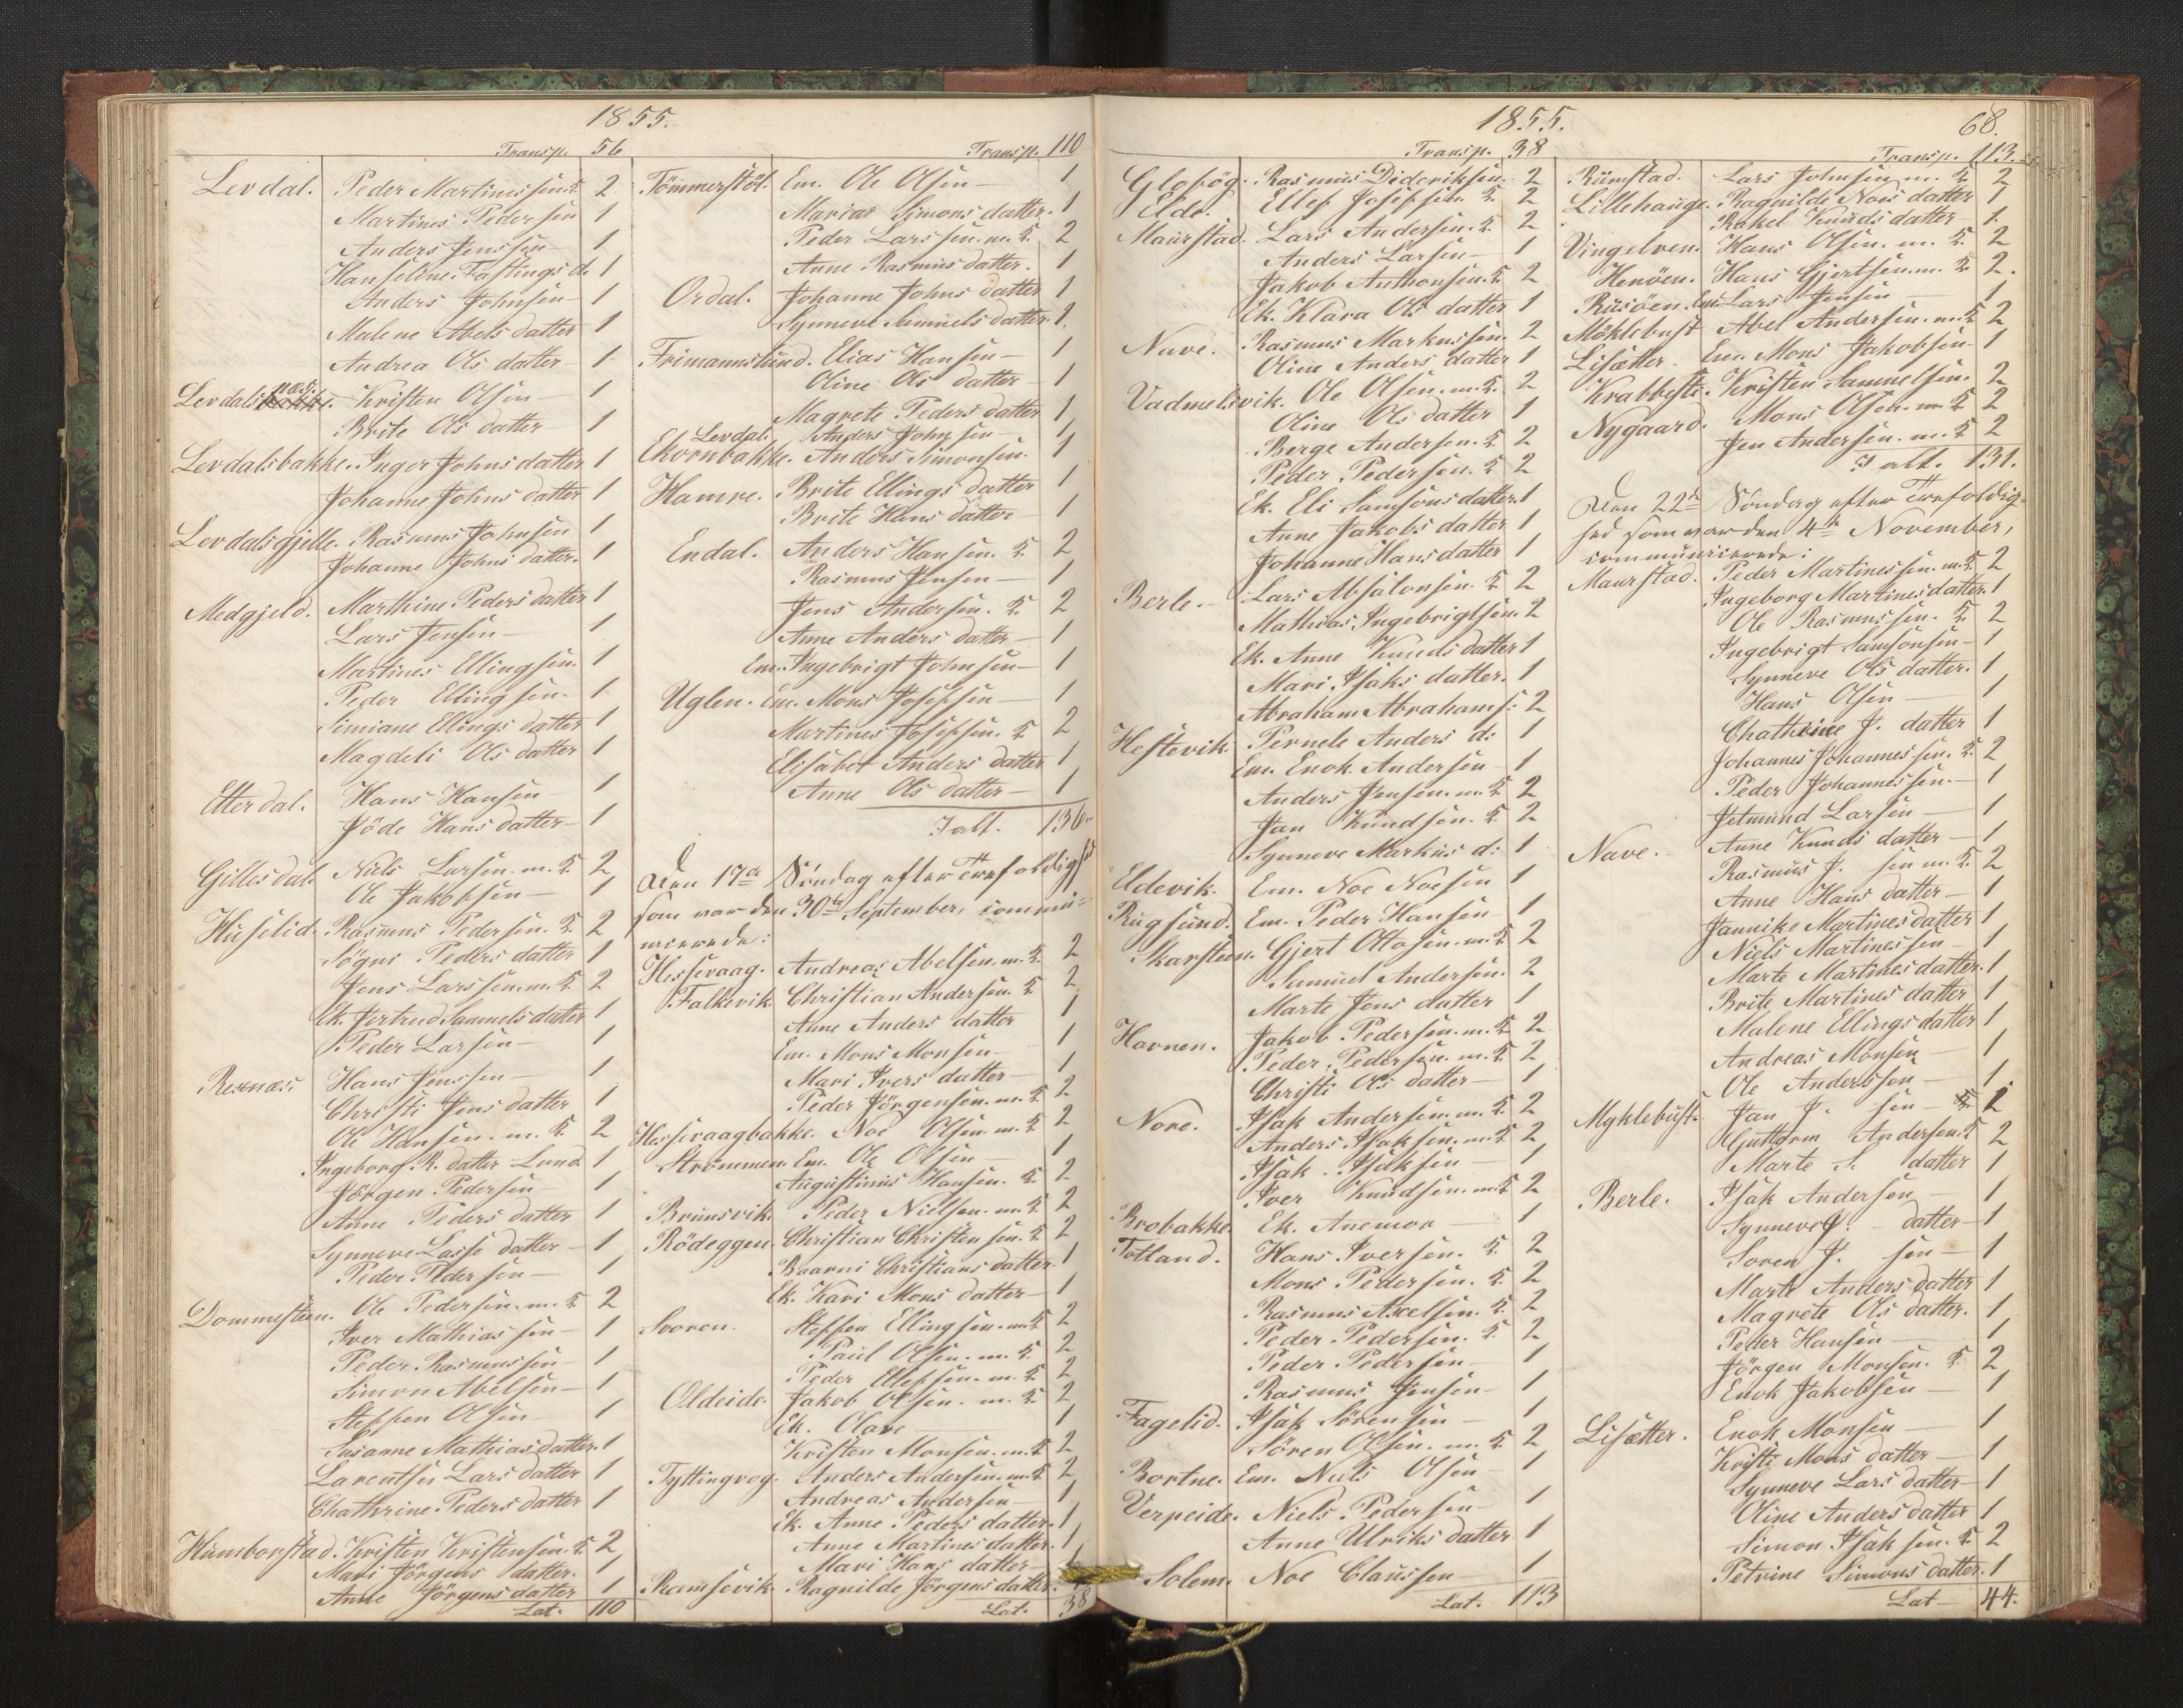 1855.
Transp. 56
Levdal. Peder Martinessen. K. 2
Martines Pedersen 1
Anders Jenssen 1
Hanseline Fastings d. 1
Anders Johnsen 1
Malene Abels datter 1
Andrea Ols datter 1
Levdals Kristen Olsen 1
Brite Ols datter 1
Levdalsbakke. Inger Johns datter 1
Johanne Johns datter 1
Levdalsgjelle. Rasmus Johnsen 1
Johanne Johns datter. 1
Medgjeld. Marthine Peders datter 1
Lars Jensen 1
Martines Ellingsen. 1
Peder Ellingsen. 1
Simiane Ellings datter 1
Magdeli Ols datter 1
Etterdal. Hans Hansen 1
Jöde Hans datter 1
Gillesdal. Niels Larsen. m. K. 2
Ole Jakobsen 1
Huselid. Rasmus Pedersen. K. 2
Sögni Peders datter 1
Jens Larssen. m. K. 2
Ek. Jertrud Samuels datter 1
Peder Larsen 1
Resenæs. Hans Jenssen 1
Christi Jens datter 1
Ole Hansen. m. K. 2
Ingeborg R. datter Lund 1
Jörgen Pedersen 1
Anne Peders datter 1
Synneve Lasse datter 1
Peder Pedersen 1
Dommesteen. Ole Pedersen. m. K. 2
Iver Mathiassen 1
Peder Rasmussen 1
Simon Abelsen 1
Steffen Olsen 1
Susanne Mathias datter. 1
Larentse Lars datter 1
Chathrine Peders datter 1
Humborstad. Kristen Kristensen. K. 2
Mari Jörgens datter. 1
Anne Jörgens datter 1
Lat. 110
Transp. 110
Tömmerstöl. Em. Ole Olsen 1
Marias Simons datter. 1
Peder Larssen. m. K. 2
Anne Rasmus datter. 1
Ordal. Johanne Johns datter 1
Synneve Samuels datter. 1.
Frimannslund. Elias Hansen 1
Oline Ols datter 1
Magrete Peders datter 1
Levdal. Anders Johnsen 1
Ekornbakke. Anders Simonsen. 1
Hamre. Brite Ellings datter 1
Brite Hans datter 1
Endal. Anders Hansen. K. 2
Rasmus Jensen 1
Jens Andersen. K. 2
Anne Anders datter 1
Em. Ingebrigt Johnsen 1
Uglen. Em. Mons Josefsen 1
Martines Josefsen. K. 2
Elisabet Anders datter 1
Anne Ols datter 1
I alt. 136.
Den 17de Söndag efter Trefoldighed
som var den 30te September, commu-
nicerede:
Hessevaag. Andreas Abelsen. m. K. 2
Falkevik. Christian Andersen. K. 2
Anne Anders datter 1
Em. Mons Monsen 1
Mari Ivers datter 1
Peder Jörgensen. m. K. 2
Hessevaagbakke. Noe Olsen. m. K. 2
Strömmen. Em. Ole Olsen 1
Augustinus Hansen. K. 2
Brunsvik. Peder Nielsen. m. K. 2
Rödeggen. Christian Christensen. K. 2
Baarni Christians datter. 1
Ek. Kari Mons datter 1
Svoren. Steffen Ellingsen. m. K. 2
Paul Olsen. m. K. 2
Peder Ellefsen. m. K. 2
Oldeide. Jakob Olsen. m. K. 2
Ek. Olave 1
Kristen Monsen. m. K. 2
Tyttingvog. Anders Andersen. m. K. 2
Andreas Andersen 1
Ek. Anne Peders datter. 1
Anne Martines datter. 1
Mari Hans datter 1
Ramsevik. Ragnilde Jörgens datter.
Lat. 38
1855.
68.
Transp. 38
Glofög. Rasmus Dideriksen. 2
Elde. Ellef Josefsen. K. 2
Maurstad. Lars Andersen. K. 2
Anders Larsen 1
Jakob Anthonsen. K. 2
Ek. Klara Ols datter 1
Nave. Rasmus Markussen. 2
Oline Anders datter 1
Vadmelsvik. Ole Olsen. m. K. 2
Oline Ols datter 1
Berge Andersen. K. 2
Peder Pedersen. K. 2
Ek. Eli Samsons datter. 1
Anne Jakobs datter 1
Johanne Hans datter 1
Berle. Lars Absalonsen. K. 2
Mathias Ingebrigtsen. 2
Ek. Anne Knuds datter 1
Mari Isaks datter. 1
Abraham Abrahams: 2
Hestevik. Pernele Anders d: 1
Em. Enok Andersen 1
Anders Jensen. m. K. 2
Jan Knudsen. K. 2
Synneve Markus d: 1
Eldevik. Em. Noe Noesen 1
Rugsund. Em. Peder Hansen 1
Skarsteen. Gjert Ottosen. m. K. 2
Samuel Andersen. 2
Marte Jens datter 1
Havnen. Jakob Pedersen. m. K. 2
Peder Pedersen. m. K. 2
Christi Ols datter 1
Nore. Isak Andersen. m. K. 2
Anders Isaksen. m. K. 2
Isak Isaksen 1
Iver Knudsen. m. K. 2
Brobakke. Ek. Anemor 1
Totland. Hans Iversen. K. 2
Mons Pedersen. K. 2
Rasmus Axelsen. K. 2
Peder Pedersen. K. 2
Peder Pedersen 1
Rasmus Jensen 1
Fagelid. Isak Sörensen 1
Sören Olsen. m. K. 2
Bortne. Em. Niels Olsen 1
Verpeide. Niels Pedersen 1
Anne Ulriks datter 1
Solem. Noe Claussen 1
Lat. 113
Transp. 113.
Rumstad. Lars Johnsen m. K. 2
Lillehauge. Ragnilde Noes datter 1
Rakel Knuds datter 1.
Vingelven. Hans Olsen. m. K. 2
Henöen. Hans Gjertsen. m. K. 2.
Rusöen. Em. Lars Jensen 1
Möklebust Abel Andersen. m. K. 2
Lisætter. Em. Mons Jakobsen 1
Krabbesti. Kristen Samuelsen. 2
Nygaard. Mons Olsen. m. K. 2
Jen Andersen. m. K. 2
I alt. 131.
Den 22de Söndag efter Trefoldig-
hed som var den 4de November,
communicerede:
Maurstad. Peder Martinessen. m. K. 2
Ingeborg Martines datter. 1
Ole Rasmussen. K. 2
Ingebrigt Samsonsen 1
Synneve Ols datter. 1
Hans Olsen 1
Chathrine J. datter 1
Johannes Johannessen. K. 2
Peder Johannessen. 1
Jetmund Larsen 1
Anne Knuds datter 1
Nave. Rasmus J. sen m. K. 2
Anne Hans datter 1
Jannike Martines datter 1
Niels Martinessen 1
Marte Martines datter. 1
Brite Martines datter 1
Malene Ellings datter 1
Andreas Monsen 1
Ole Anderssen 1
Myklebust. Jan J. sen 1
Guttorm Andersen. K. 2
Marte S. datter 1
Berle. Isak Andersen 1
Synneve J. datter 1
Soren J. sen 1
Marte Anders datter 1
Magrete Ols datter. 1
Peder Hansen 1
Jörgen Monsen. K. 2
Enok Jakobsen 1
Lisætter. Enok Monsen 1
Kristi Mons datter 1
Synneve Lars datter 1
Oline Anders datter 1
Simon Isaksen. K. 2
Petrine Simons datter. 1
Lat 44.